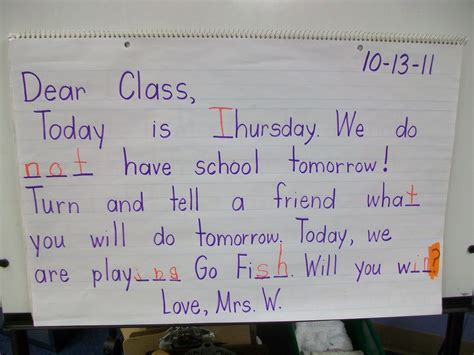 10-13-11
Dear Class,
Today is Thursday. We do
not have school tomorrow!
Turn and tell a friend what
you will do tomorrow. Today, we
are playing Go Fish. Will you win?
Love, Mrs. W.